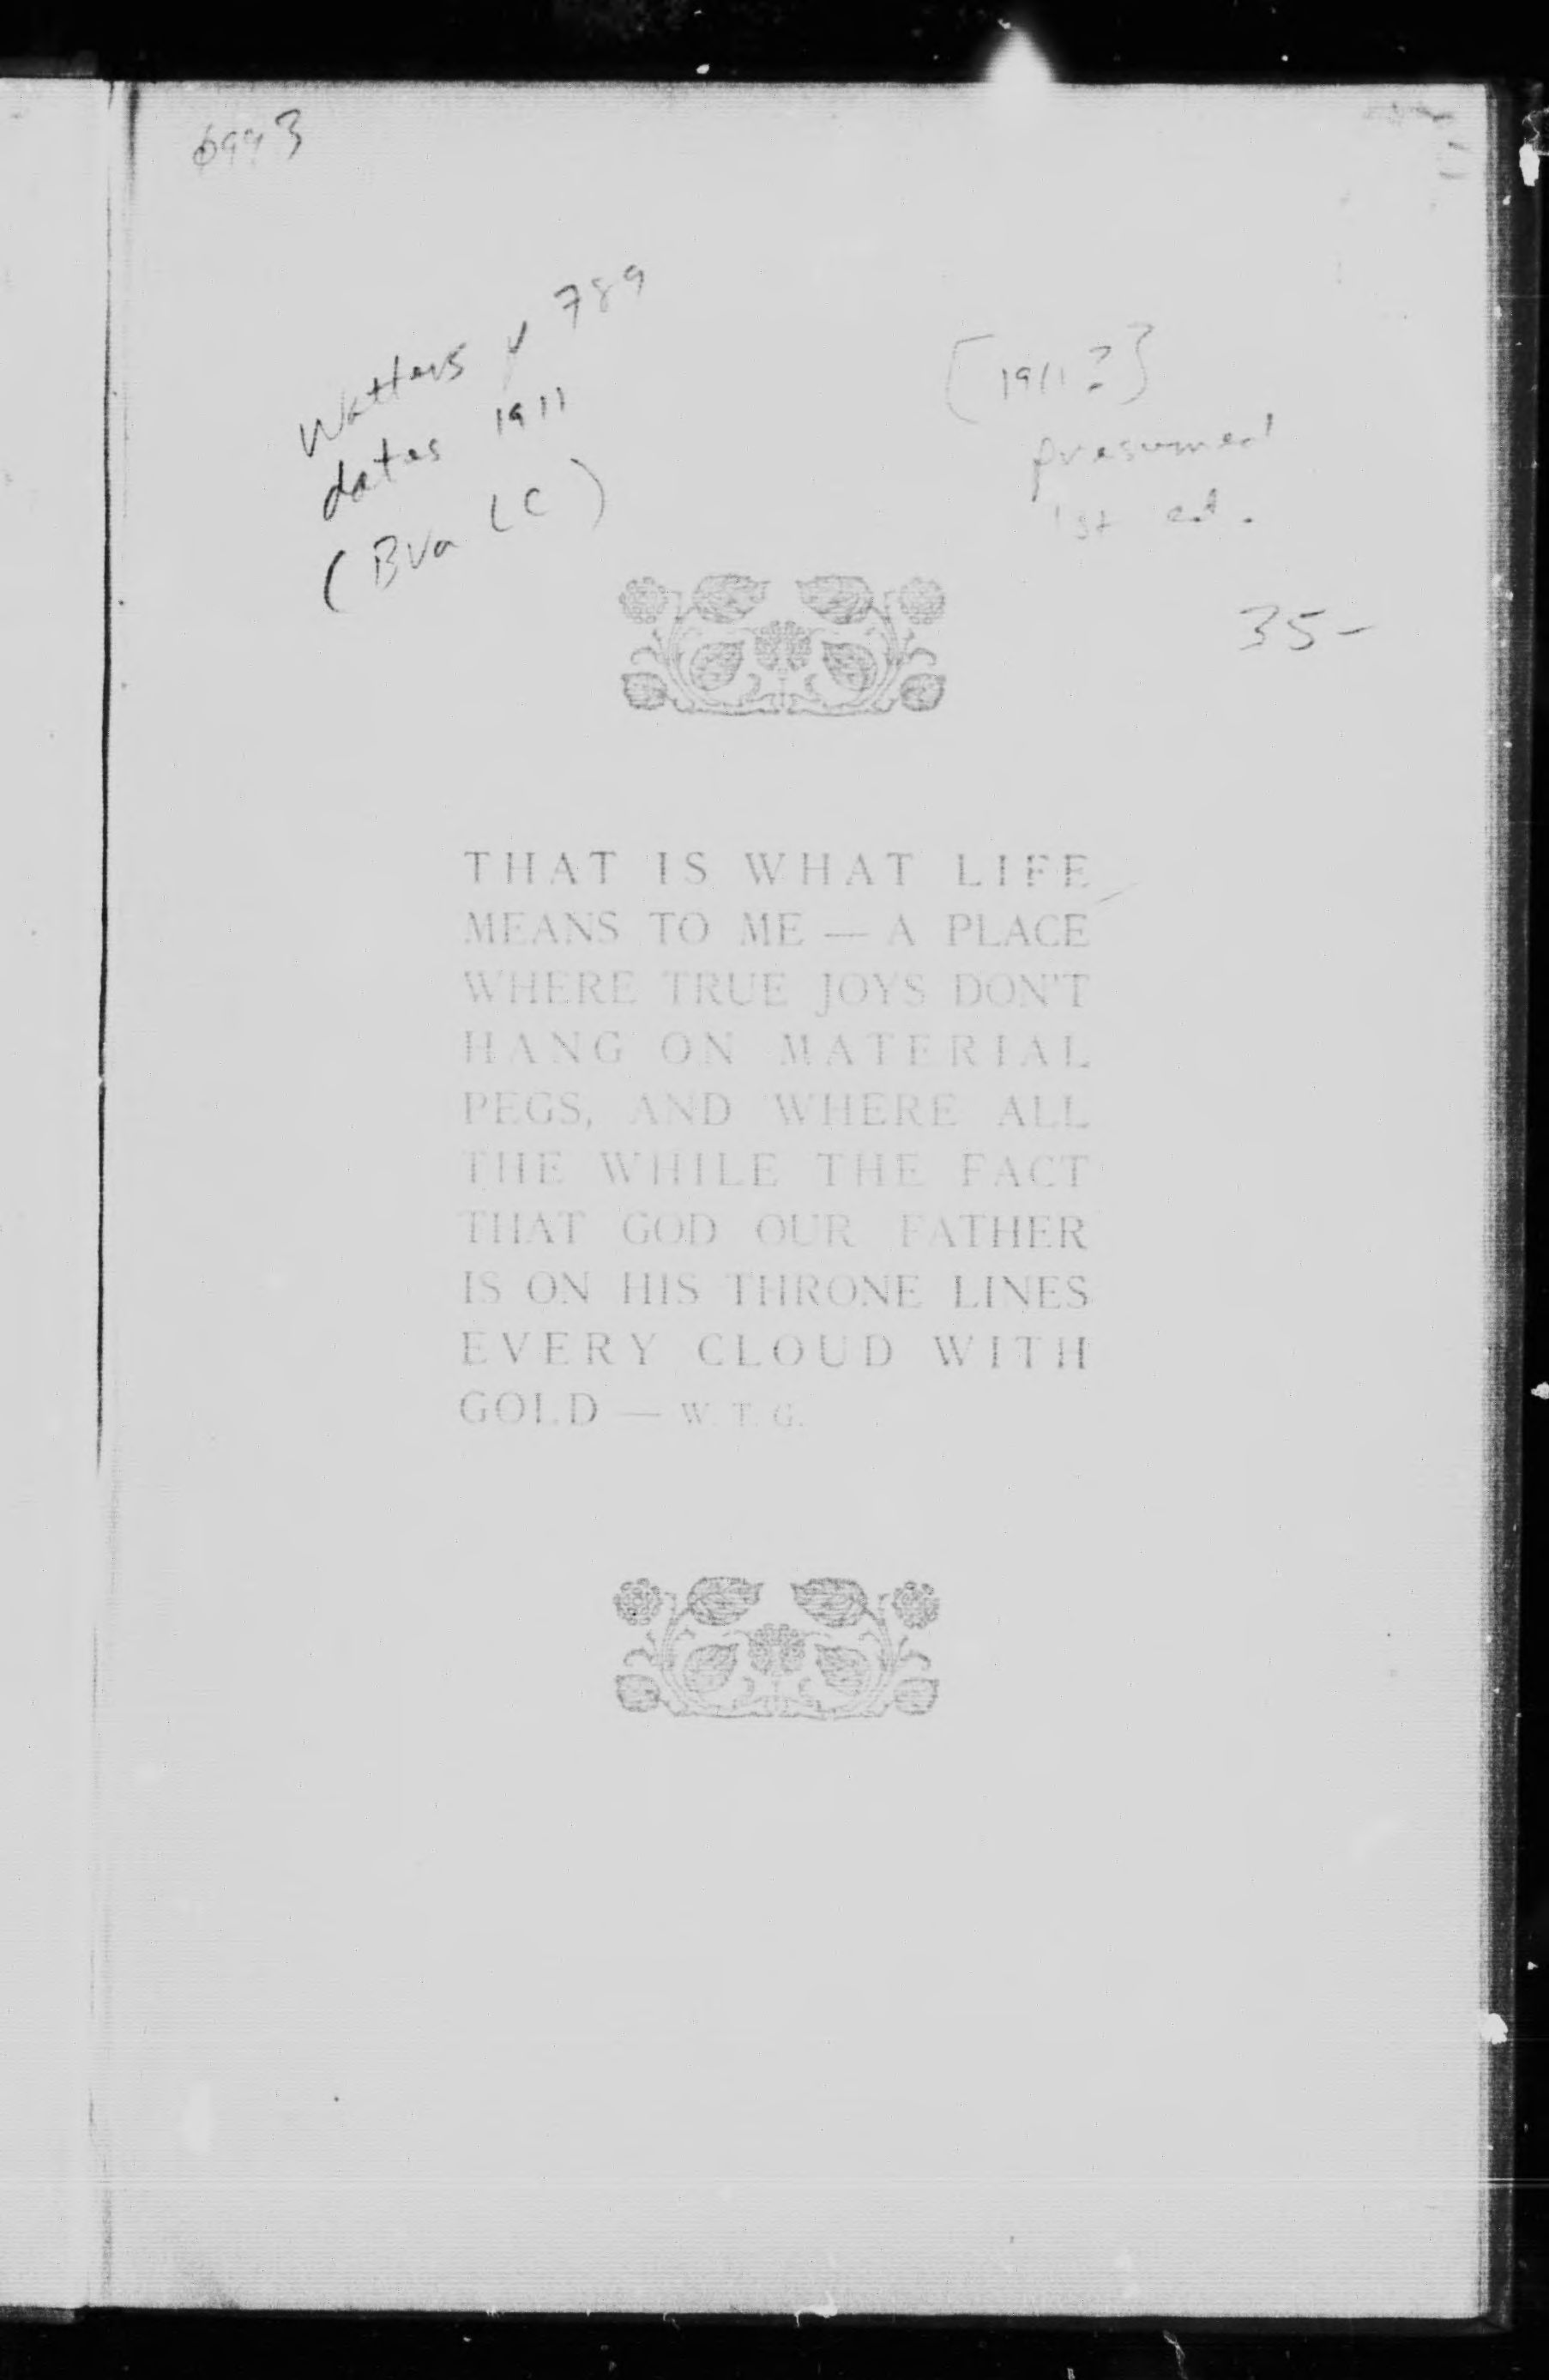 6993
Watters p 789
dates 1911
(BVa LC)
[1911?]
presumed
1st ed.
35-
THAT IS WHAT LIFE
MEANS TO ME — A PLACE
WHERE TRUE JOYS DON'T
HANG ON MATERIAL
PEGS, AND WHERE ALL
THE WHILE THE FACT
THAT GOD OUR FATHER
IS ON HIS THRONE LINES
EVERY CLOUD WITH
GOLD — W. T. G.